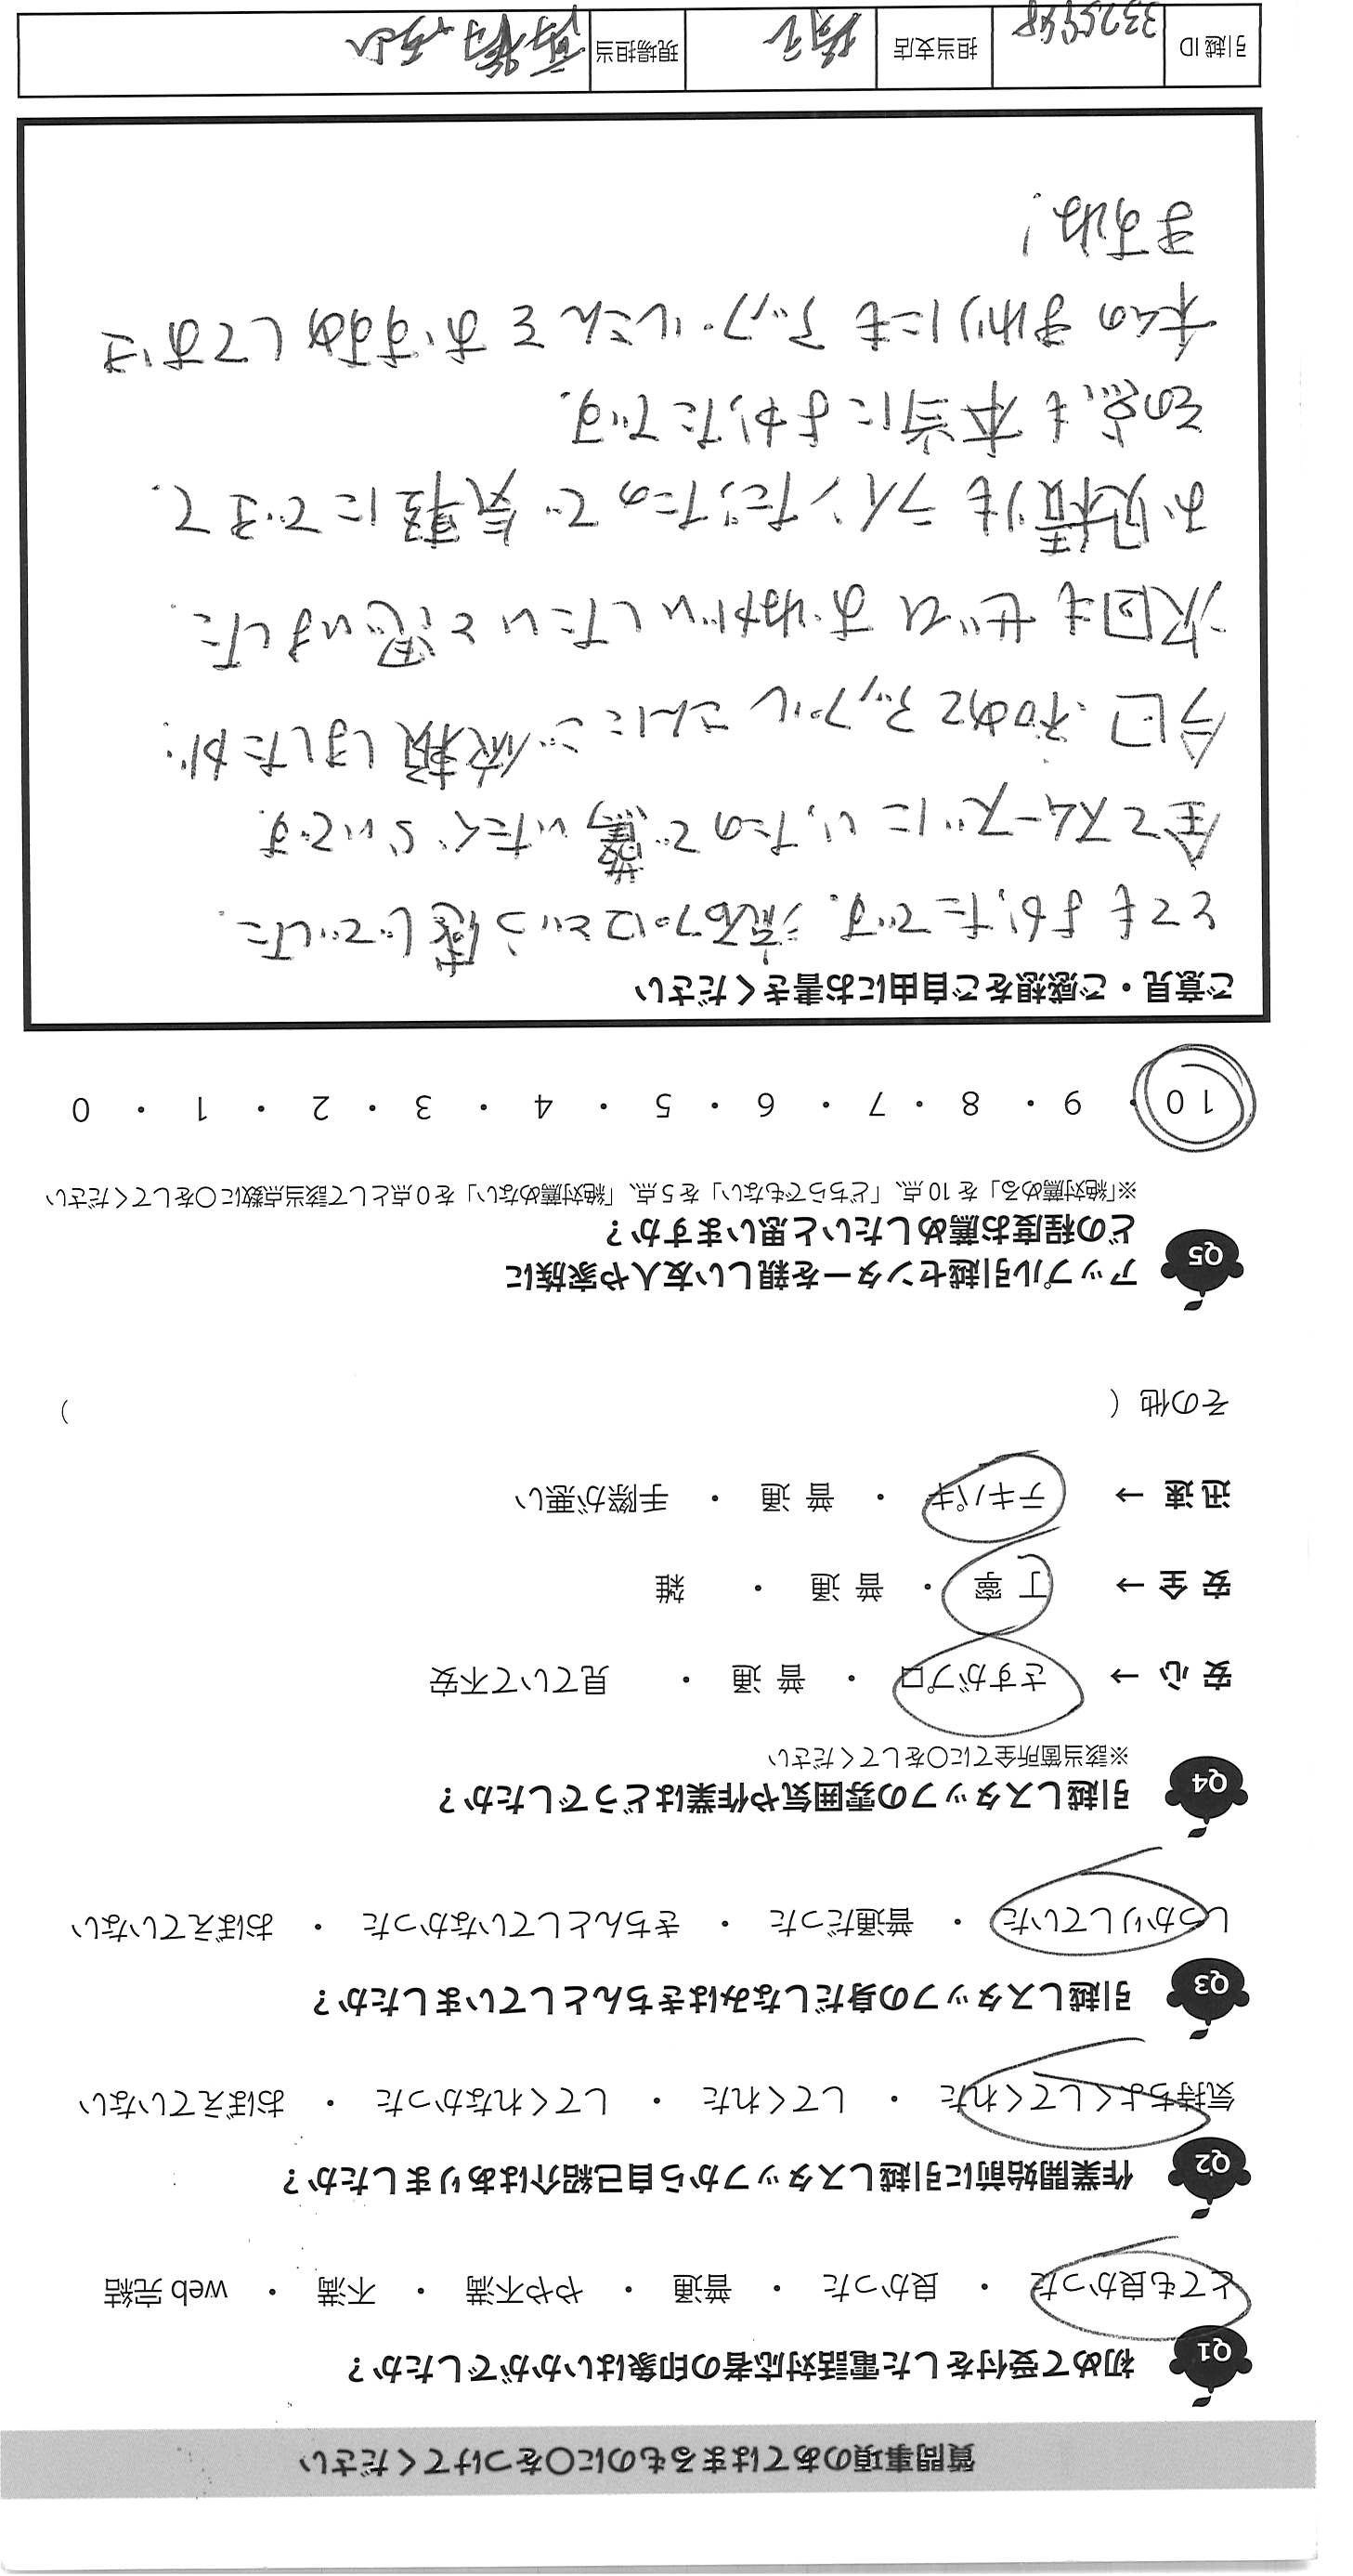 質問事項のあてはまるものに○をつけてください
Q1 初めて受付をした電話対応者の印象はいかがでしたか?
とても良かった ・ 良かった ・ 普通 ・ やや不満 ・ 不満 ・ web 完結
Q2 作業開始前に引越しスタッフから自己紹介はありましたか?
気持ちよくしてくれた ・ してくれた ・ してくれなかった ・ おぼえていない
Q3 引越しスタッフの身だしなみはきちんとしていましたか?
しっかりしていた ・ 普通だった ・ きちんとしていなかった ・ おぼえていない
Q4 引越しスタッフの雰囲気や作業はどうでしたか?
※該当箇所全てに○をしてください
安 心 → さすがプロ ・ 普 通 ・ 見ていて不安
安 全 → 丁 寧 ・ 普 通 ・ 雑
迅 速 → テキパキ ・ 普 通 ・ 手際が悪い
その他 ( )
Q5 アップル引越センターを親しい友人や家族に
どの程度お薦めしたいと思いますか?
※「絶対薦める」を 10 点、「どちらでもない」を 5 点、「絶対薦めない」を 0 点として該当点数に○をしてください
10 ・ 9 ・ 8 ・ 7 ・ 6 ・ 5 ・ 4 ・ 3 ・ 2 ・ 1 ・ 0
ご意見・ご感想をご自由にお書きください
とてもよかったです。流石プロという感じでした。
全てスムーズにいったので驚いたぐらいです。
今回初めてアップルさんにご依頼しましたが、
次回もぜひおねがいしたいと思いました。
お見積りもラインだったので気軽にできて、
その点も本当によかったです。
私のまわりにもアップルさんをおすすめしておき
ますね!
引越 ID 担当支店 埼玉 現場担当